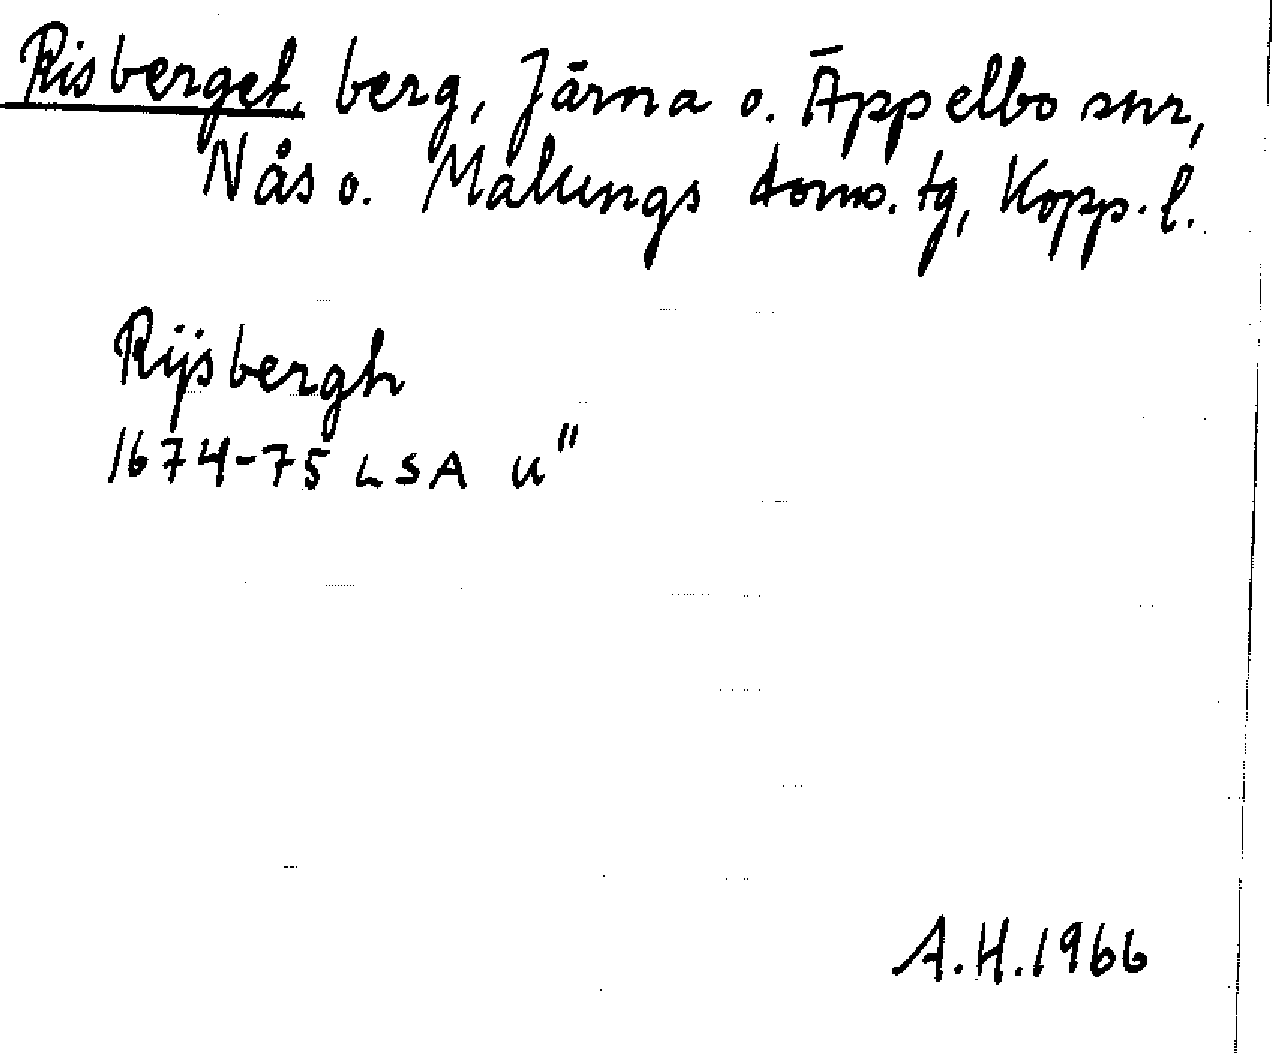 Risberget, berg, Järna o. Äppelbo snr,
Nås o. Malungs doms. tg, Kopp. l.
Rijsbergh
1674-75 LSA u"
A.H.1966